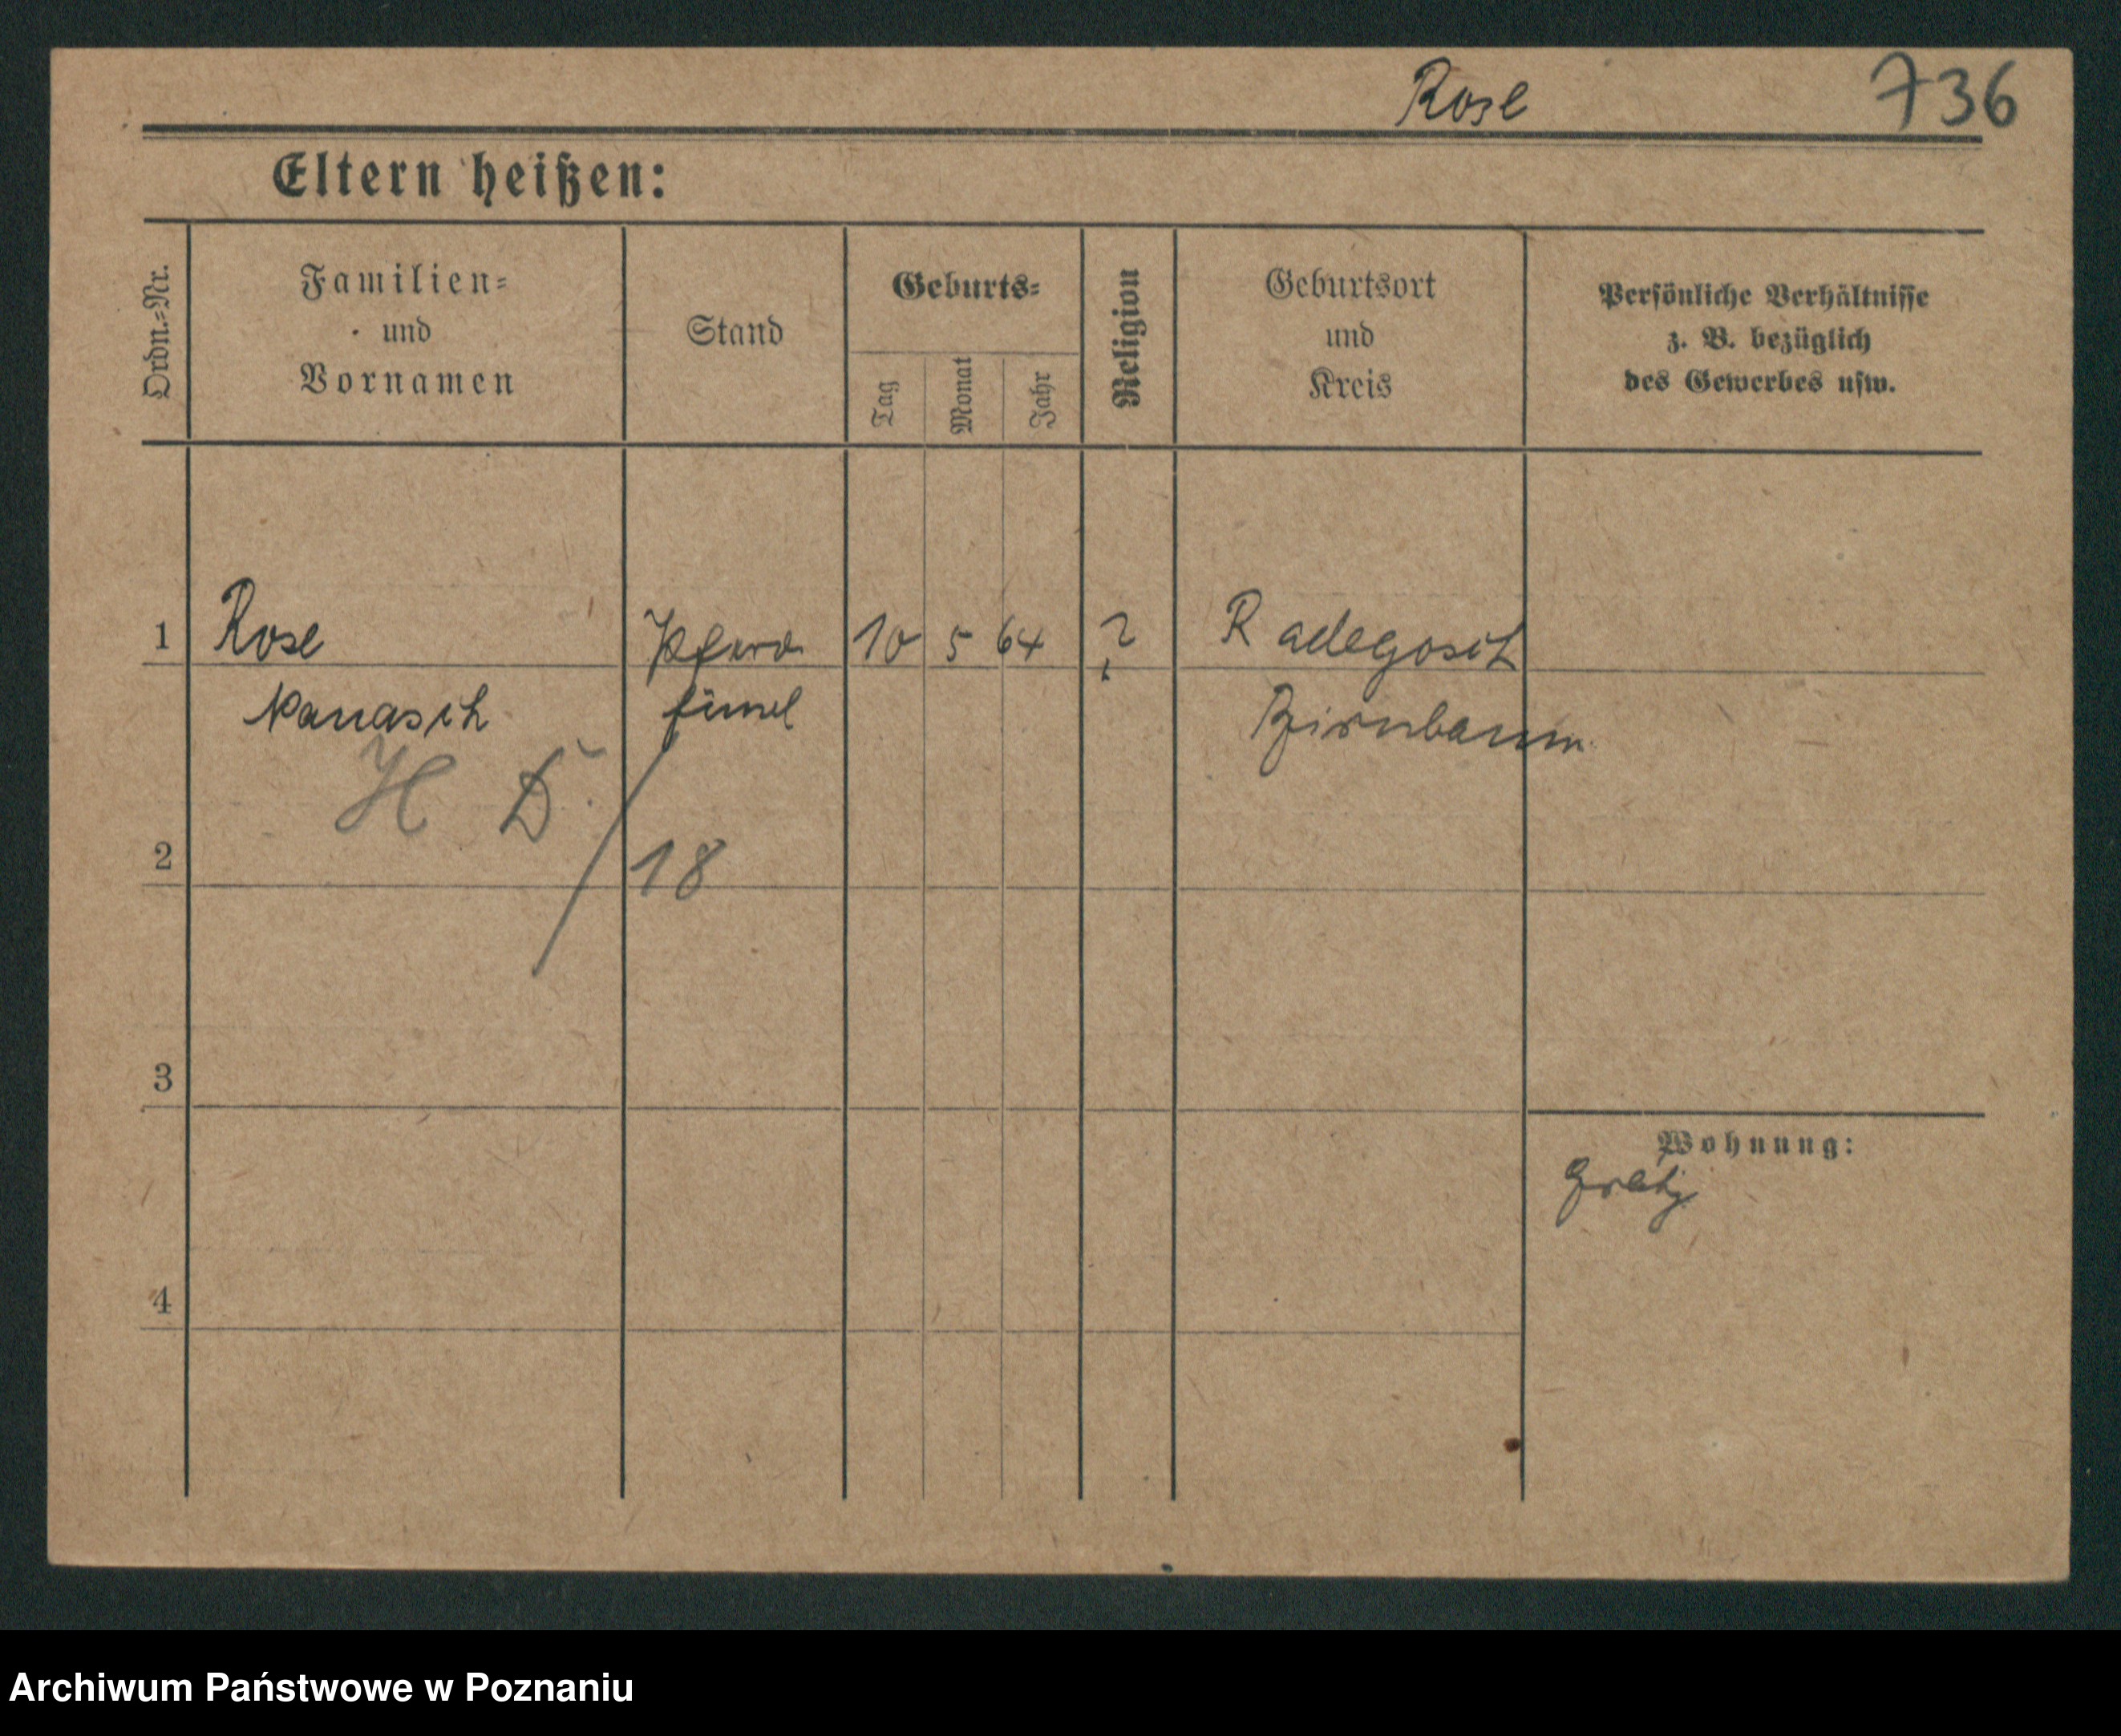 Rose 736
Eltern heißen:
Ordn.=Nr.
Familien=
und
Vornamen
Stand
Geburts=
Tag
Monat
Jahr
Religion
Geburtsort
und
Kreis
Persönliche Verhältnisse
z. B. bezüglich
des Gewerbes usw.
1 Rose 10 5 64 ? Radegosch
Manasch Birnbaum
H D. / 18
2
3
Wohnung:
Grätz
4
Archiwum Państwowe w Poznaniu